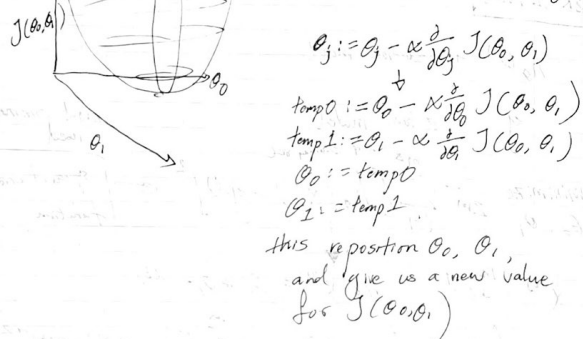 J(θ0,θ1)
θ0
θ1
θj := θj - α ∂/∂θj J(θ0, θ1)
↓
temp0 := θ0 - α ∂/∂θ0 J(θ0, θ1)
temp1 := θ1 - α ∂/∂θ1 J(θ0, θ1)
θ0 := temp0
θ1 := temp1
this reposition θ0, θ1,
and give us a new value
for J(θ0,θ1)